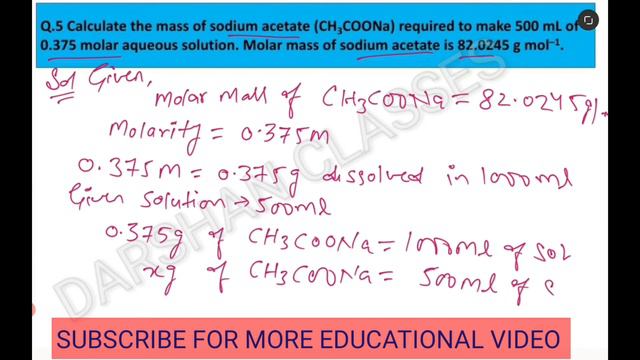 Q.5 Calculate the mass of sodium acetate (CH₃COONa) required to make 500 mL of
0.375 molar aqueous solution. Molar mass of sodium acetate is 82.0245 g mol⁻¹.
Sol Given,
molar mass of CH3COONa = 82.0245g/
molarity = 0.375m
0.375m = 0.375g dissolved in 1000ml
Given solution → 500ml
0.375g of CH3COONa = 1000ml of sol
xg of CH3COONa = 500ml of
DARSHAN CLASSES
SUBSCRIBE FOR MORE EDUCATIONAL VIDEO